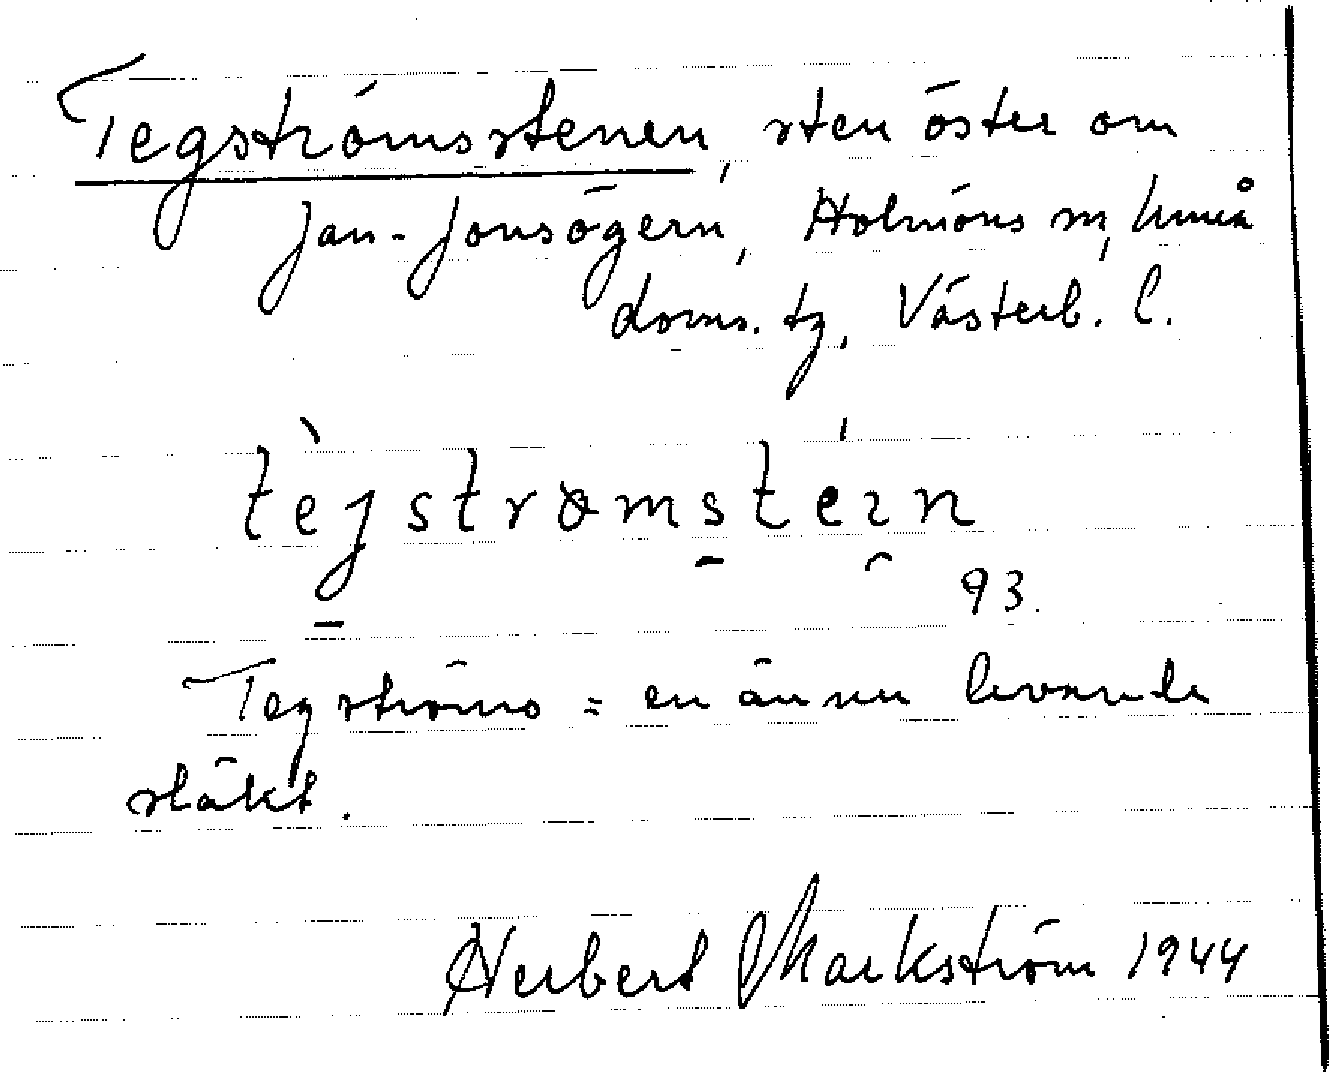 Tegströmsstenen, sten öster om
Jan-Jonsögern, Holmöns sn, Umeå
doms. tg, Västerb. l.
tèjstrømsteın
93.
Tegströms = en ännu levande
släkt.
Herbert Markström 1944